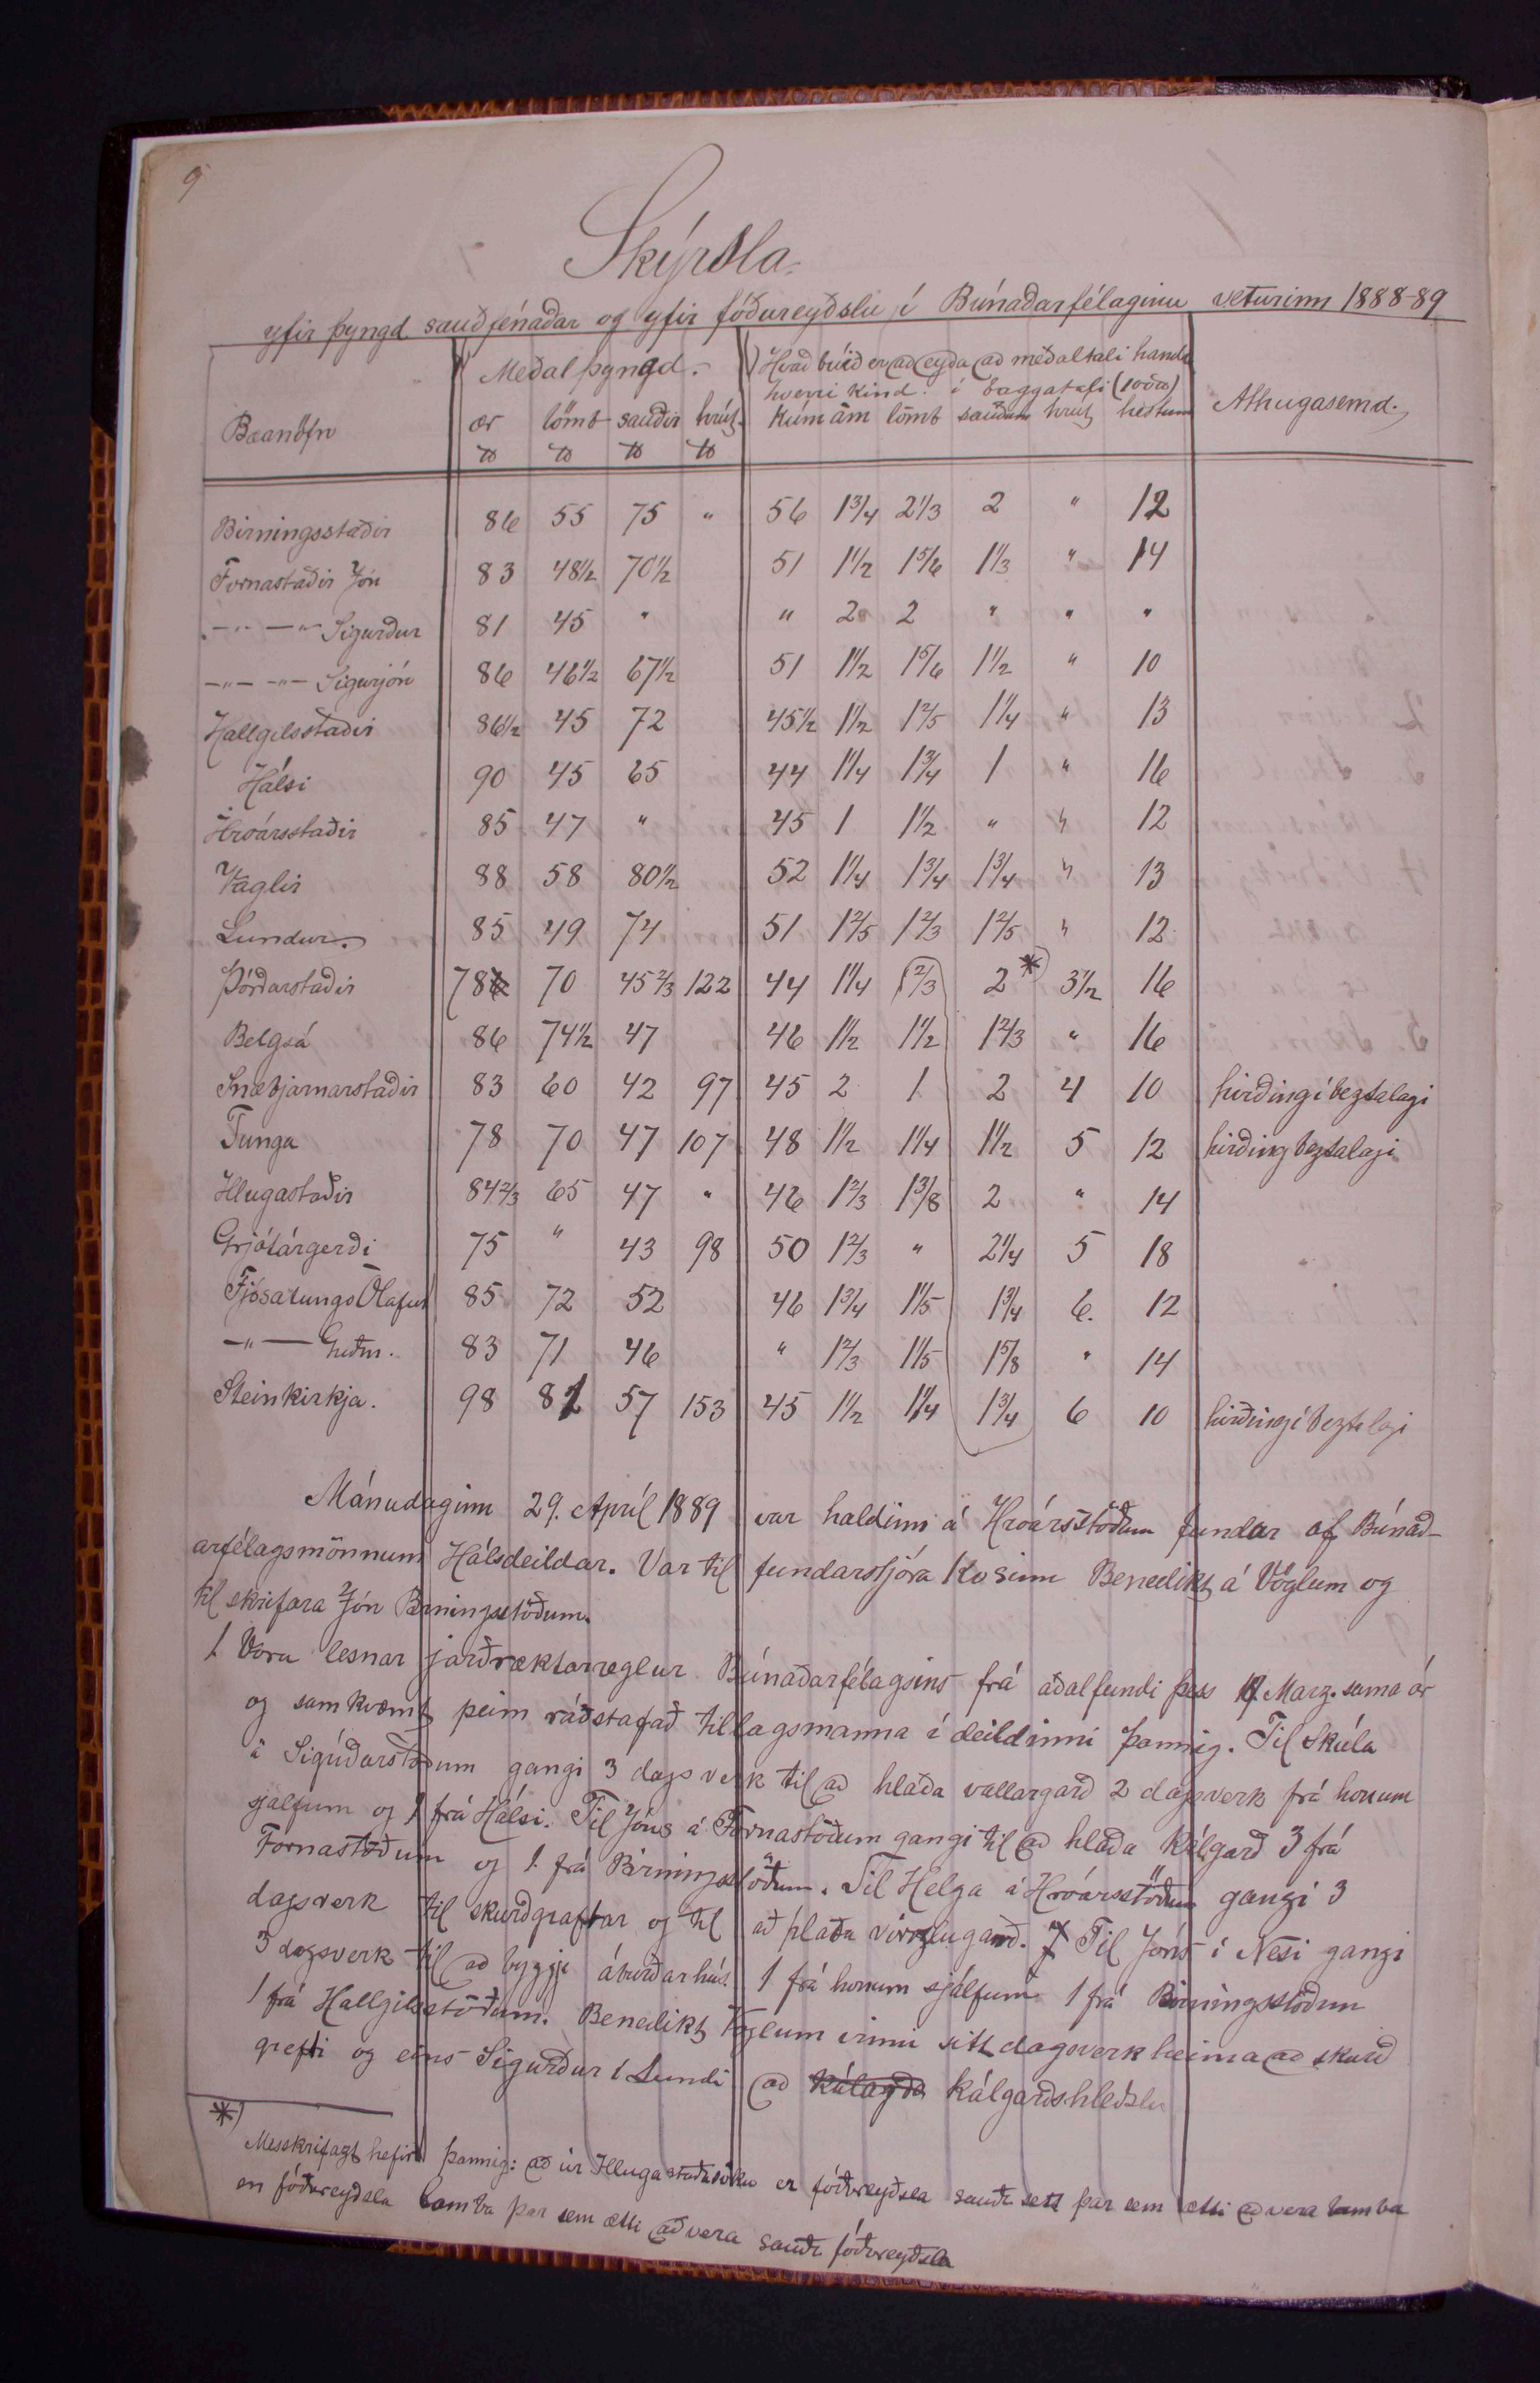 9
Skýrsla
yfir þyngd sauðfénaðar og yfir fóðureyðslu í Búnaðarfélaginu veturinn 1888-89
Bæanöfn | Meðalþyngd. | Hvað búið er að eyða að meðaltali handa hverri kind í baggatali (100 ℔) | Athugasemd.
ær | lömb | sauðir | hrút. | Kúm | ám | lömb | sauðum | hrút | hestum
℔ ℔ ℔ ℔
Birningsstaðir 86 55 75 " 56 1 3/4 2 1/3 2 " 12
Fornastaðir Jón 83 48 1/2 70 1/2 51 1 1/2 1 5/6 1 1/3 " 14
-"- -"- Sigurður 81 45 " " 2 2 " " "
-"- -"- Sigurjón 86 46 1/2 67 1/2 51 1 1/2 1 5/6 1 1/2 " 10
Hallgilsstaðir 86 1/2 45 72 45 1/2 1 1/2 1 2/5 1 1/4 " 13
Hálsi 90 45 65 44 1 1/4 1 3/4 1 " 16
Hróarsstaðir 85 47 " 45 1 1 1/2 " " 12
Vaglir 88 58 80 1/2 52 1 1/4 1 3/4 1 3/4 " 13
Lundur. 85 49 74 51 1 2/5 1 2/3 1 2/5 " 12
Þórðarstaðir 78 70 45 2/3 122 44 1 1/4 1 2/3 2 *) 3 1/2 16
Belgsá 86 74 1/2 47 46 1 1/2 1 1/2 1 2/3 " 16
Snæbjarnarstaðir 83 60 42 97 45 2 1 2 4 10 hirðing í beztalagi
Tunga 78 70 47 107 48 1 1/2 1 1/4 1 1/2 5 12 hirðing beztalagi
Illugastaðir 84 2/3 65 47 " 46 1 2/3 1 3/8 2 " 14
Grjótárgerði 75 " 43 98 50 1 2/3 " 2 1/4 5 18
Fjósatunga Ólafur 85 72 52 46 1 3/4 1 1/5 1 3/4 6. 12
-"- Guðm. 83 71 46 " 1 2/3 1 1/5 1 5/8 " 14
Steinkirkja. 98 81 57 153 45 1 1/2 1 1/4 1 3/4 6 10 hirðing í beztalagi
Mánudaginn 29. Apríl 1889 var haldinn á Hróarsstöðum fundar af Búnað-
arfélagsmönnum Hálsdeildar. Var til fundarstjóra kosinn Benedikt á Vöglum og
til skrifara Jón Birningsstöðum.
1. Voru lesnar jarðræktarreglur Búnaðarfélagsins frá aðalfundi þess Marz. sama ár
og samkvæmt þeim ráðstafað tillagsmanna í deildinni þannig. Til Skúla
á Sigríðarstöðum gangi 3 dagsverk til að hlaða vallargarð 2 dagsverk frá honum
sjálfum og 1 frá Hálsi. Til Jóns á Fornastöðum gangi til að hlaða kálgarð 3 frá
Fornastöðum og 1 frá Birningsstöðum. Til Helga á Hróarsstöðum gangi 3
dagsverk til skurðgraftar og til að hlaða vörzlugarð. Til Jóns í Nesi gangi
3 dagsverk til að byggja áburðarhús. 1 frá honum sjálfum 1 frá Birningsstöðum
1 frá Hallgilsstöðum. Benedikt Vöglum vinni sitt dagsverk heima að skurð
grefti og eins Sigurður í Lundi að kálgarðshleðslu
*)
Misskrifazt hefir þannig: að úr Illugastaðasókn er fóðureyðsla sauða sett þar sem ætti að vera lamba
en fóðureyðsla lamba þar sem ætti að vera sauða fóðureyðsla